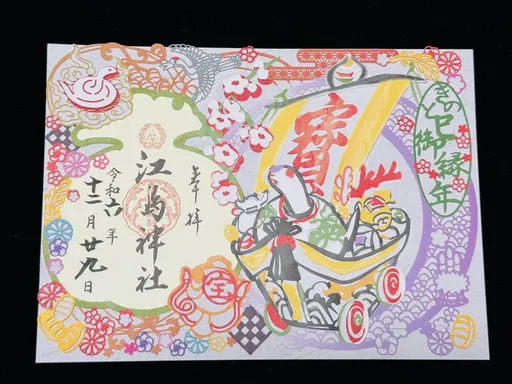 きのと巳
御縁年
寳
奉拝
江島神社
令和六年
十二月廿九日